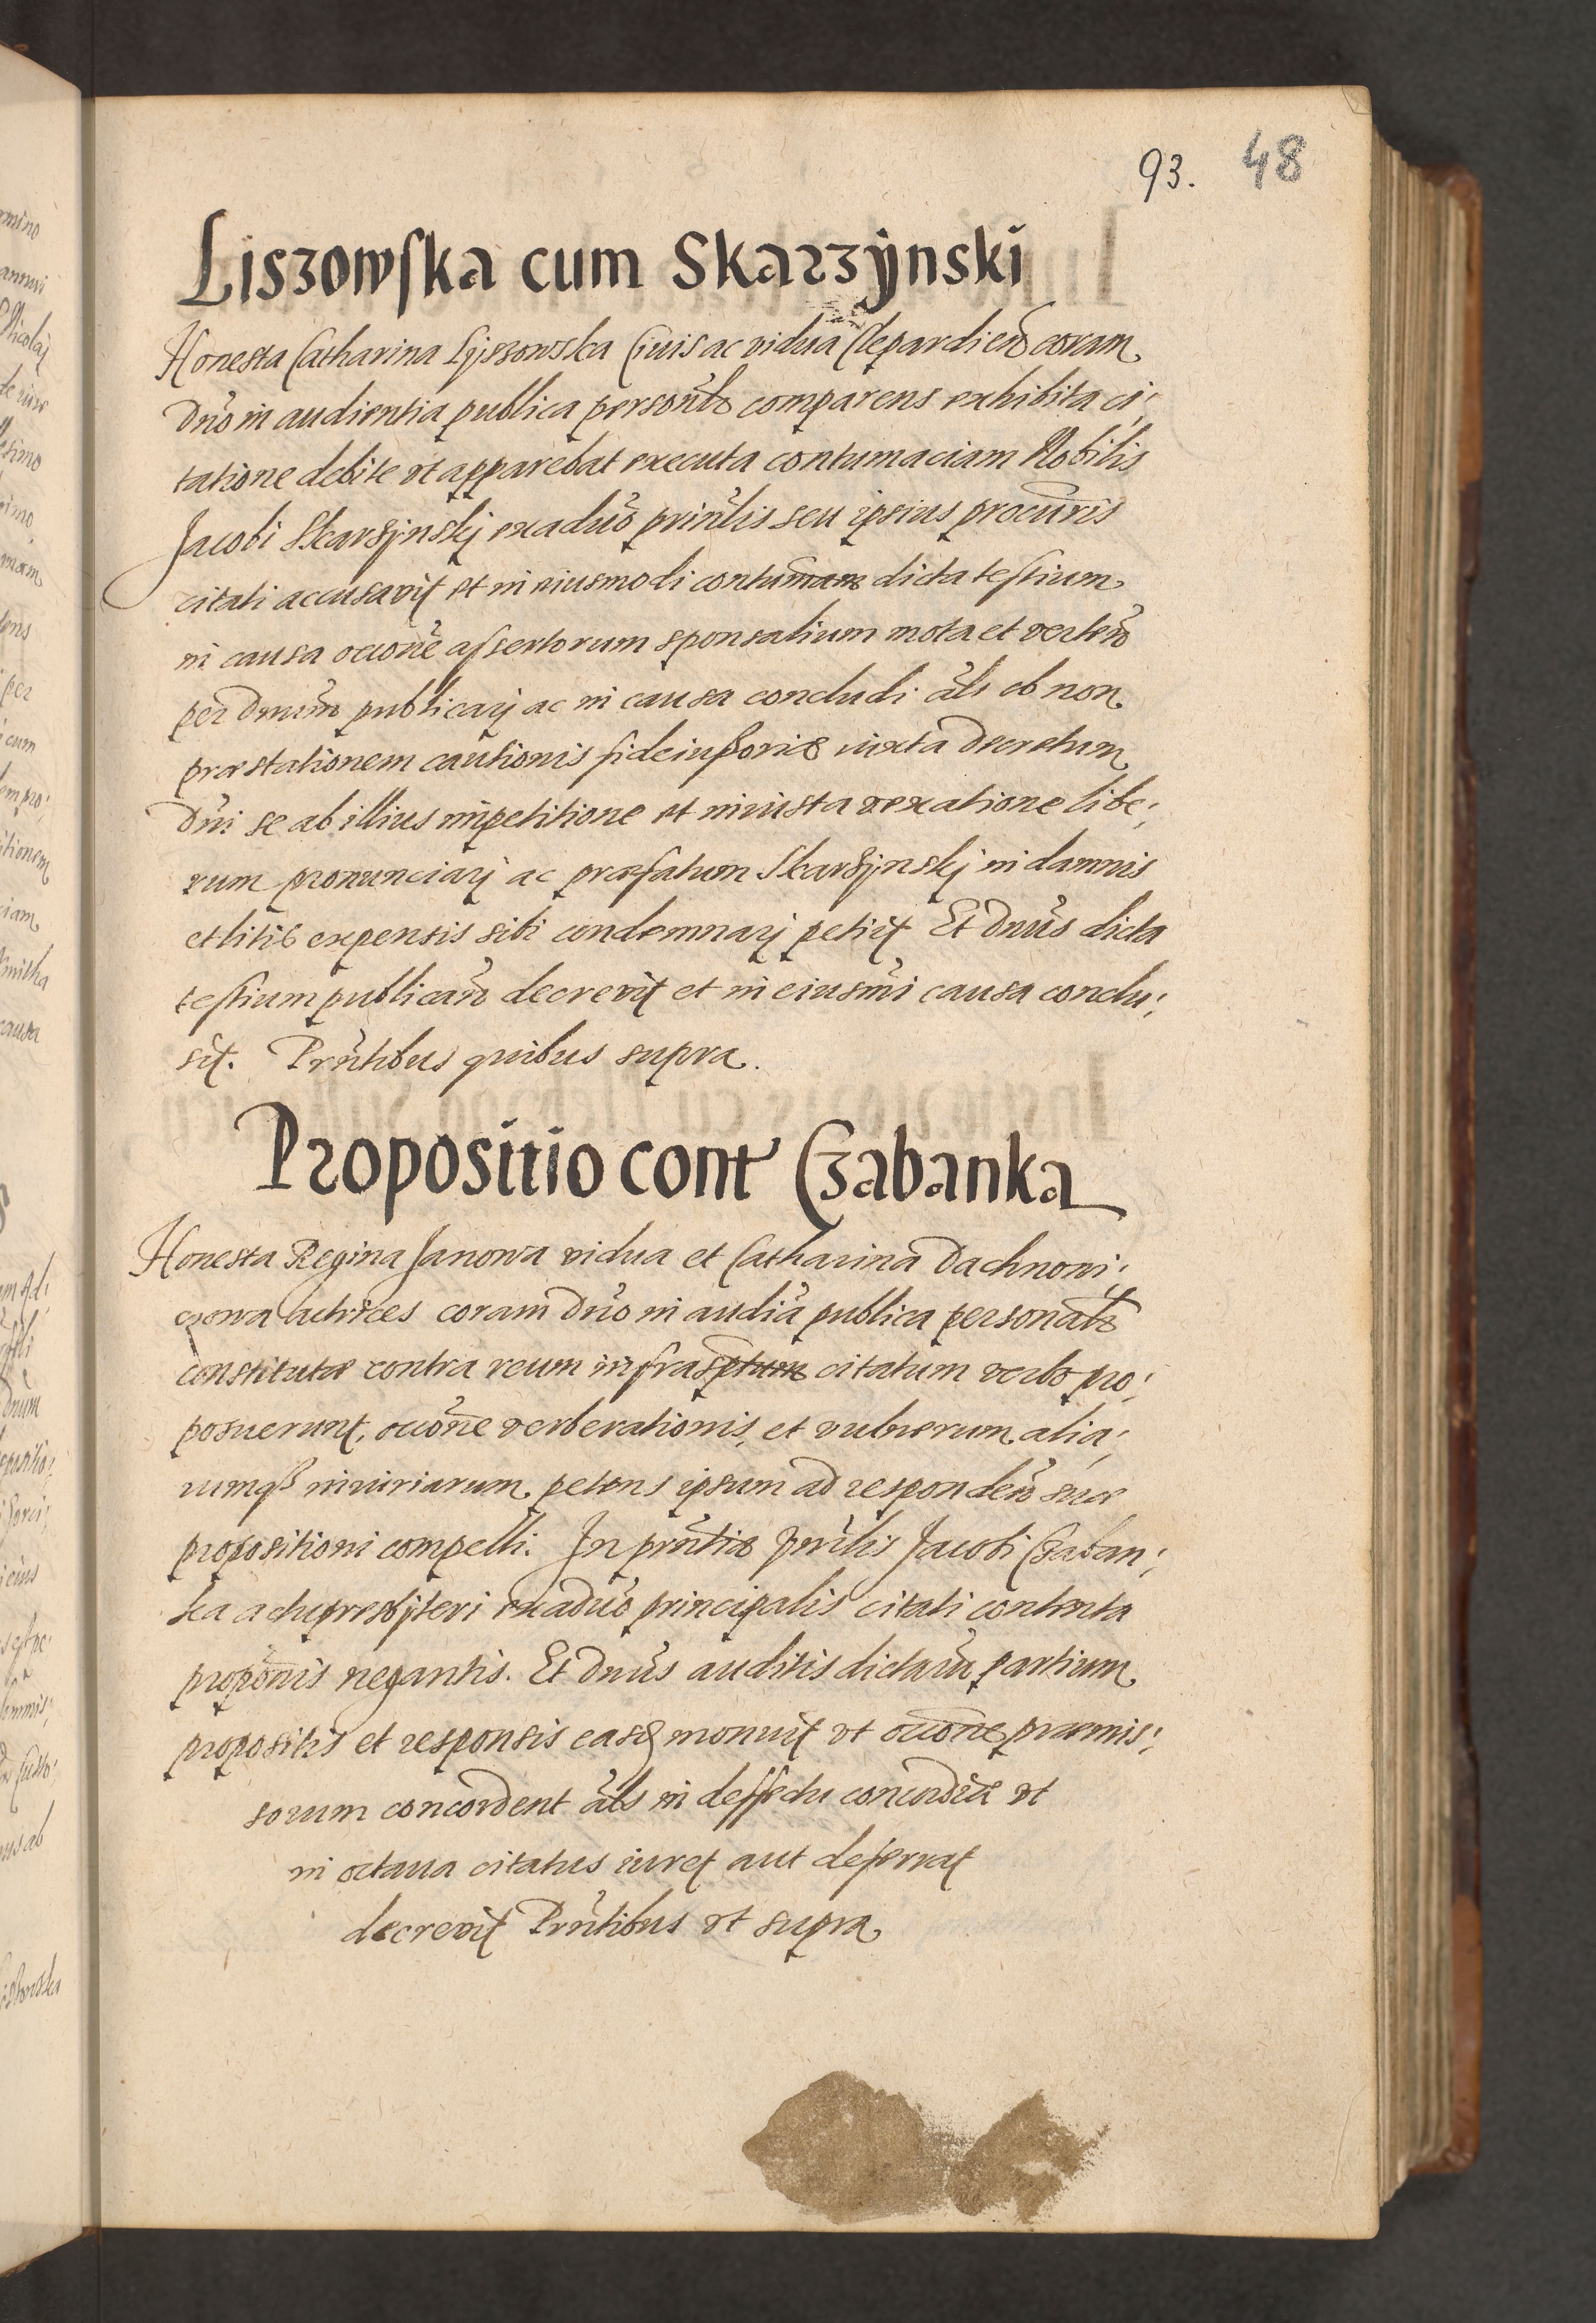 93. 48
Liszowska cum Skarzÿnski
Honesta Catharina Lÿszowska Ciuis ac vidua Clepardien coram
Dno in audientia publica personlr comparens exhibita ci;
tatione debite vt apparebat executa contumaciam Nobilis
Jacobi Skarsÿnskj ex aduo prinlis seu ipsius procuris
citati accusavit et in eiusmodi contumam dicta testium
in causa occone assertorum sponsalium mota et verten
per Dnum publicarj ac in causa concludi als ob non
præstationem cautionis fideiussoriæ iuxta decretum
Dni se ab illius impetitione et iniusta vexatione libe;
rum pronunciarj ac præfatum Skarsÿnskj in damnis
et litis expensis sibi condemnarj petiit Et Dnus dicta
testium publican decrevit et in eiusmi causa conclu;
sit. Prntibus quibus supra.
Propositio cont Czabanka
Honesta Regina Janowa vidua et Catharina Dachnowi;
czowa actrices coram Dno in audia publica personalr
constitutæ contra reum infrasptum citatum verbo pro;
posuerunt, occone verberationis, et vulnerum alia;
rumq iniuriarum petens ipsum ad responden suæ
propositioni compelli. In prntia pnlis Jacobi Czaban;
ka actu presbÿteri ex aduo principalis citati contenta
proponis negantis. Et Dnus auditis dictaru partium
propositis et responsis easq monuit vt occone præmis;
sorum concordent als in deffectu concordiæ vt
in octaua citatus iuret aut deferrat
decrevit Prntibus vt supra